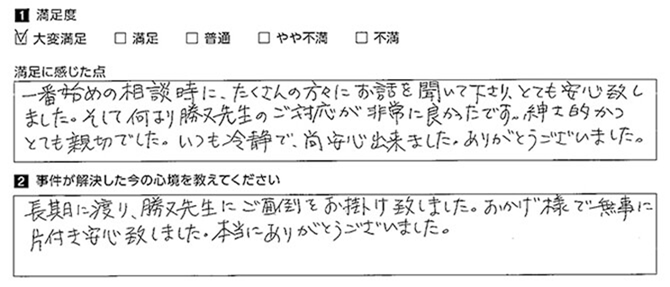 1 満足度
☑ 大変満足 □ 満足 □ 普通 □ やや不満 □ 不満
満足に感じた点
一番始めの相談時に、たくさんの方々にお話を聞いて下さり、とても安心致し
ました。そして何より勝又先生のご対応が非常に良かったです。紳士的かつ
とても親切でした。いつも冷静で、尚安心出来ました。ありがとうございました。
2 事件が解決した今の心境を教えてください
長期に渡り、勝又先生にご面倒をお掛け致しました。おかげ様で無事に
片付き安心致しました。本当にありがとうございました。